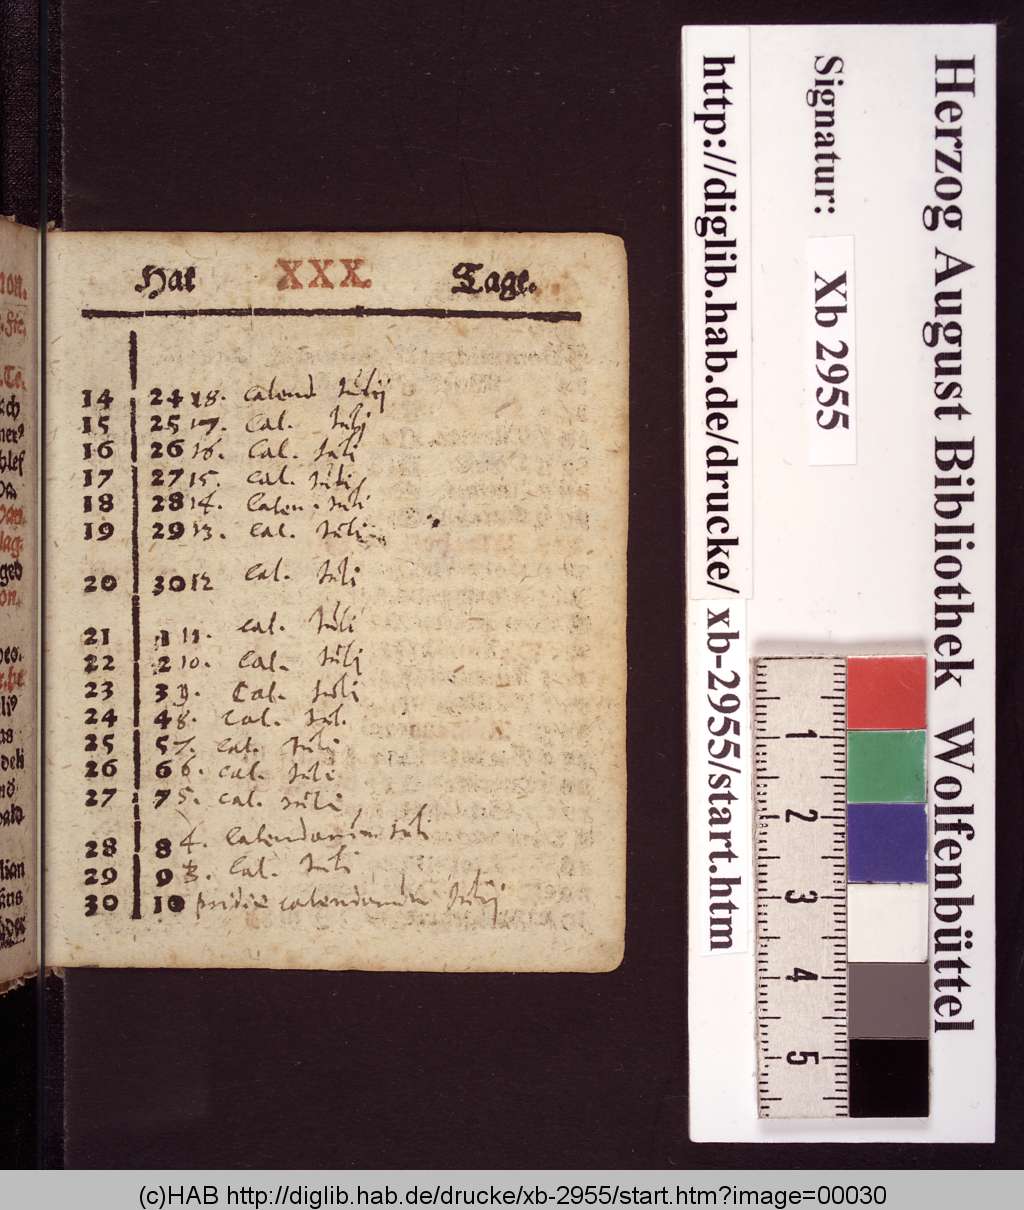 Hat XXX. Tage.
14 24 18. calend Julij
15 25 17. Cal. Julij
16 26 16. Cal. Juli
17 27 15. Cal. Juli
18 28 14. Calen. Juli
19 29 13. Cal. Juli
20 30 12 Cal. Juli
21 1 11. Cal. Juli
22 2 10. Cal. Julj
23 3 9. Cal. Juli
24 4 8. Cal. Jul.
25 5 7. Cal. Juli
26 6 6. Cal. Juli
27 7 5. Cal. Juli
28 8 4. Calendarum Juli
29 9 3. Cal. Juli
30 10 pridie calendarum Julij
Herzog August Bibliothek Wolfenbüttel
Signatur: Xb 2955
http://diglib.hab.de/drucke/ xb-2955/start.htm
1
2
3
4
5
(c)HAB http://diglib.hab.de/drucke/xb-2955/start.htm?image=00030